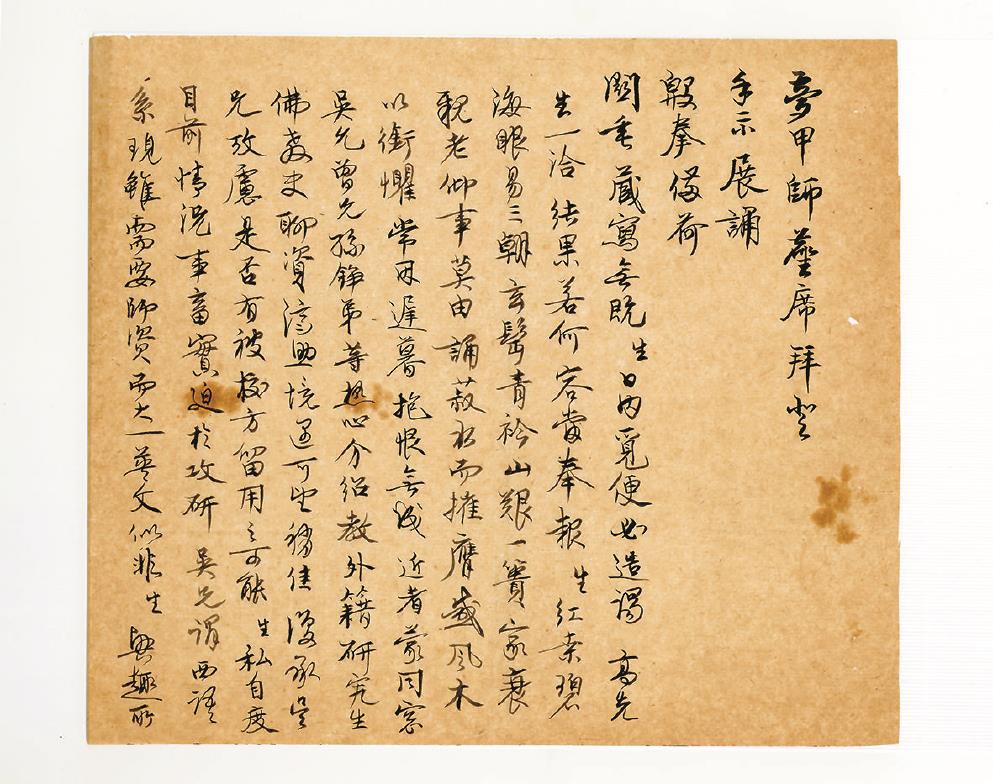 夢甲師臺席拜登
手示展誦
殷拳偹荷
關垂蔵寫無既生日內覓便必造謁高先
生一洽結果若何容當奉報生紅桑碧
海眼易三朝玄髫青衿山艱一簣家衰
親老仰事莫由誦菽水而摧膺感風木
以銜懼常用遲暮抱恨無涘近者蒙同窓
吳允曾兄孫錚弟等热心介紹教外籍研究生
佛教史聊資濟助境遇可望稍佳復承吳
兄攷慮是否有被校方留用之可能生私自度
目前情況事畜實迫於攻研吳兄謂西語
系現雖需要師資而大一英文似非生興趣所